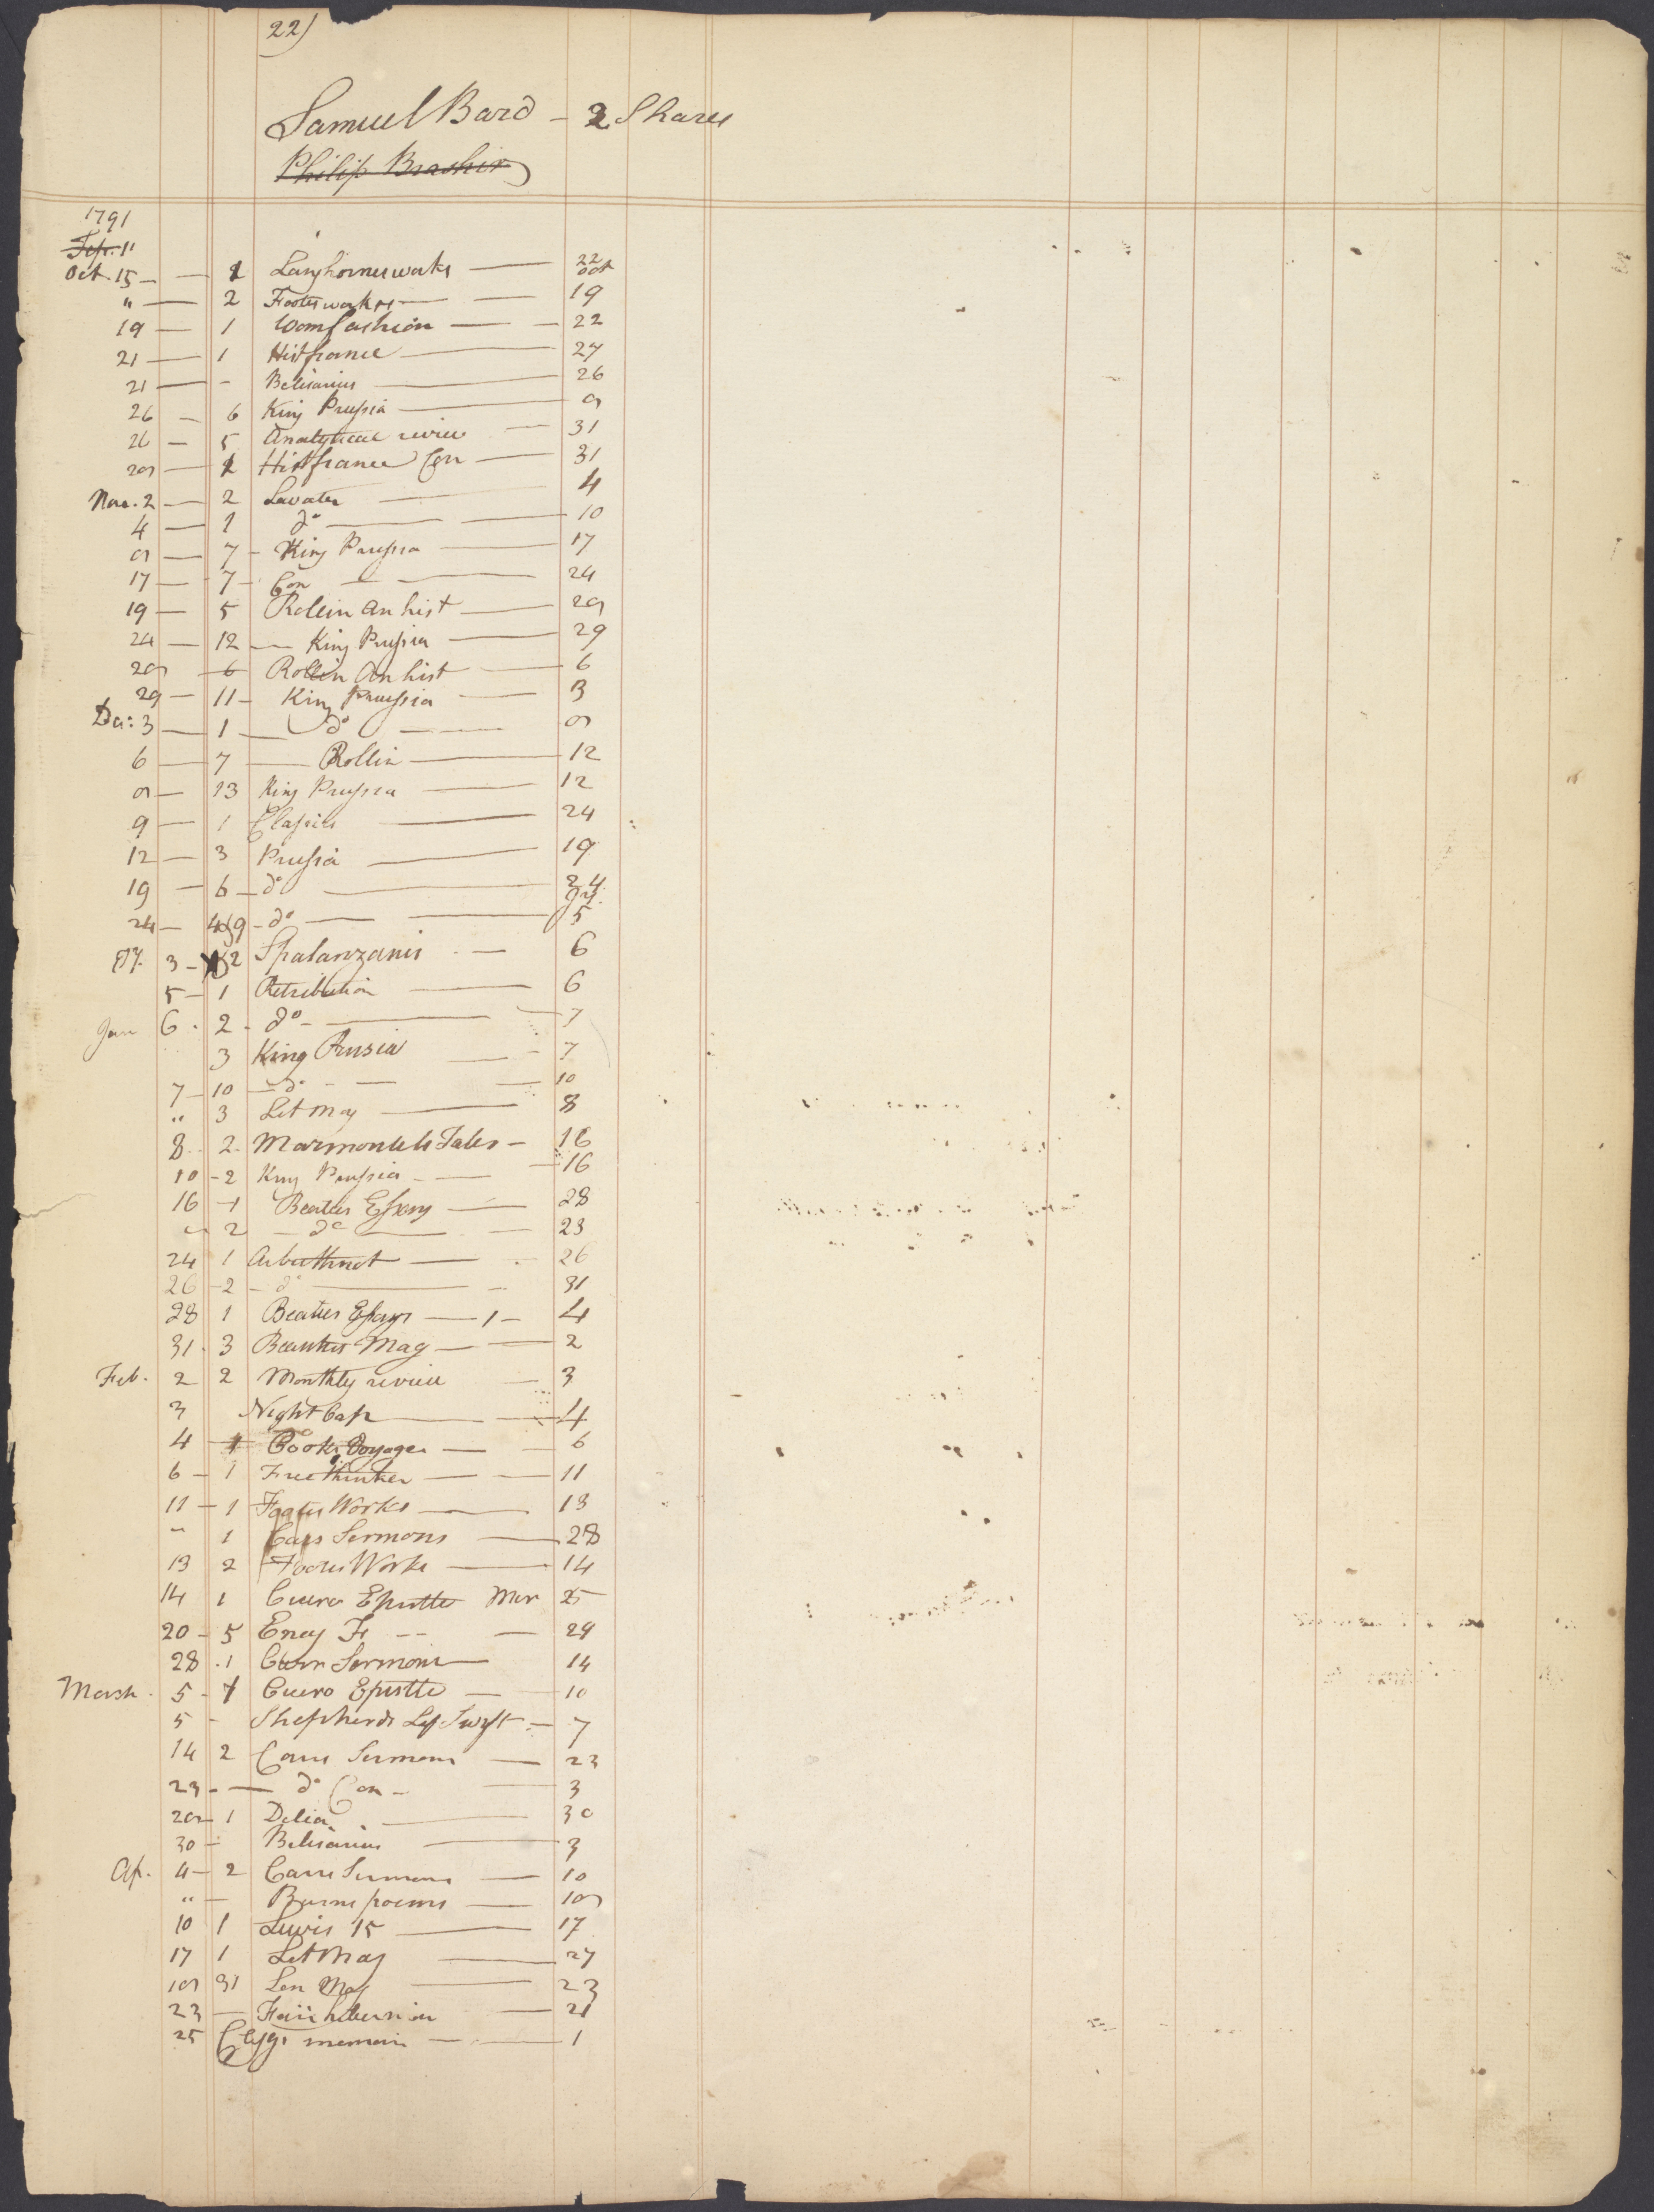 22)
Samuel Bard - 2 Shares
Philip Brasher
1791
Sep. 11
Oct. 15 - 1 Langhornes works - 22 Oct
" - 2 Footes works - 19
19 - 1 Womfashion - 22
21 - 1 Hist france - 27
21 - - Belisarius - 26
26 - 6 King Prussia - 8
26 - 5 Analytical review - 31
28 - 1 Hist france Con - 31
Nov. 2 - 2 Lavater - 4
4 - 1 do - 10
8 - 7 - King Prussia - 17
17 - 7 - Con - 24
19 - 5 Rollin an hist - 28
24 - 12 - King Prussia - 29
28 - 6 Rollin An hist - 6
29 - 11 - King Prussia - 3
De: 3 - 1 - do - 8
6 - 7 - Rollin - 12
8 - 13 King Prussia - 12
9 - 1 Classics - 24
12 - 3 Prussia - 19
19 - 6 - do - 24
24 - 4&9 - do - Jy. 5
Jy. 3 - 2 Spalanzanis - 6
5 - 1 Retribution - 6
Jan 6 . 2 - do - 7
3 King Prusia - 7
7 - 10 - do - 10
" 3 Lit Mag - 8
8 - 2 - Marmontels Tales - 16
10 - 2 King Prussia - 16
16 - 1 Beaties Essays - 28
" 2 - do - 23
24 1 Arbuthnot - 26
26 - 2 - do - 31
28 1 Beaties Essays - 1 - 4
31 . 3 Beauties Mag - 2
Feb. 2 2 Monthly review - 3
3 Night Cap - 4
4 - 1 Cooks Voyages - 6
6 - 1 Free thinker - 11
11 - 1 Footes Works - 13
" 1 Cars Sermons - 28
13 2 Footes Works - 14
14 1 Cicero Epistles Mar 25
20 - 5 Ency Fr - 29
28 . 1 Carr Sermons - 14
Marsh . 5 - 1 Cicero Epistle - 10
5 - Shepherds - 7
14 2 Carrs Sermons - 23
23 - - do Con - 3
28 - 1 Delia - 30
30 - Belisarius - 3
Ap. 4 - 2 Carrs Sermons - 10
" - Burns poems - 18
10 1 Lewis 15 - 17
17 1 Lit Mag - 27
18 31 Lon Mag - 23
23 - Fair hibernian - 21
25 memoirs - 1